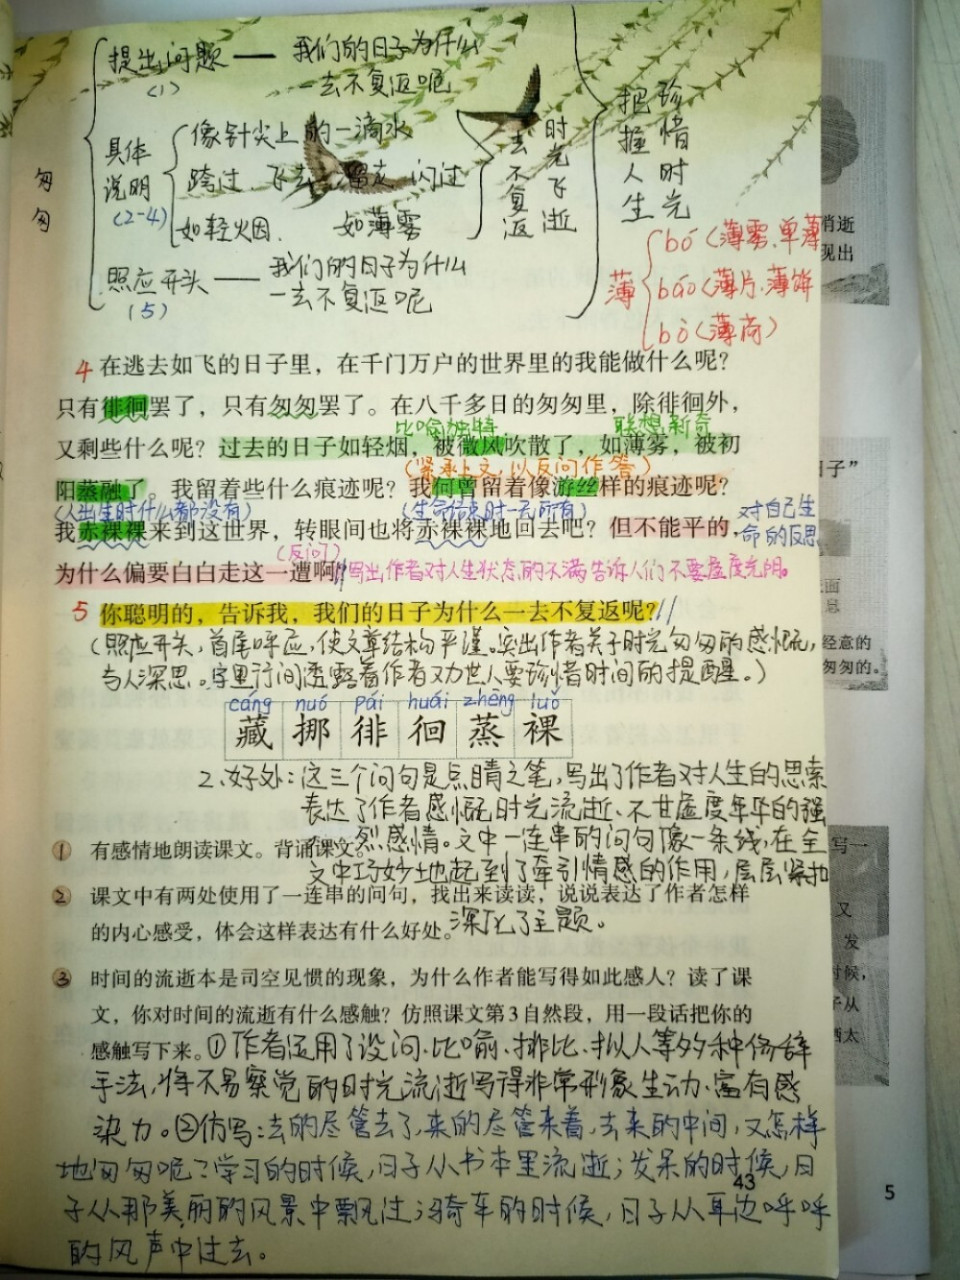 匆匆
提出问题——我们的日子为什么
一去不复返呢
(1)
具体说明
(2-4)
像针尖上的一滴水
跨过 飞去 溜走 闪过
如轻烟. 如薄雾
一去不复返
时光飞逝
照应开头——我们的日子为什么
一去不复返呢
(5)
把握人生
珍惜时光
薄
bó(薄雾.单薄
báo(薄片.薄饼
bò(薄荷)
4 在逃去如飞的日子里，在千门万户的世界里的我能做什么呢？
只有徘徊罢了，只有匆匆罢了。在八千多日的匆匆里，除徘徊外，
比喻独特. 联想新奇
又剩些什么呢？过去的日子如轻烟，被微风吹散了，如薄雾，被初
(紧承上文,以反问作答)
阳蒸融了。我留着些什么痕迹呢？我何曾留着像游丝样的痕迹呢？
(人出生时什么都没有) (生命结束时一无所有) 对自己生
我赤裸裸来到这世界，转眼间也将赤裸裸地回去吧？但不能平的， 命的反思
(反问)
为什么偏要白白走这一遭啊？写出作者对人生状态的不满,告诉人们不要虚度光阴。
5 你聪明的，告诉我，我们的日子为什么一去不复返呢？
(照应开头,首尾呼应,使文章结构严谨。突出作者关于时光匆匆的感慨,
与人深思。字里行间透露着作者对世人要珍惜时间的提醒。)
cáng nuó pái huái zhēng luǒ
藏 挪 徘 徊 蒸 裸
2、好处:这三个问句是点睛之笔,写出了作者对人生的思索
表达了作者感慨时光流逝、不甘虚度年华的强
烈感情。文中一连串的问句像一条线,在全
文中巧妙地起到了牵引情感的作用,层层紧扣
深化了主题。
① 有感情地朗读课文。背诵课文。
② 课文中有两处使用了一连串的问句，找出来读读，说说表达了作者怎样
的内心感受，体会这样表达有什么好处。
③ 时间的流逝本是司空见惯的现象，为什么作者能写得如此感人？读了课
文，你对时间的流逝有什么感触？仿照课文第3自然段，用一段话把你的
感触写下来。①作者运用了设问、比喻、排比、拟人等多种修辞
手法,将不易察觉的时光流逝写得非常形象生动、富有感
染力。②仿写:去的尽管去了,来的尽管来着,去来的中间,又怎样
地匆匆呢?学习的时候,日子从书本里流逝;发呆的时候,日
子从那美丽的风景中飘过;骑车的时候,日子从耳边呼呼
的风声中过去。
43
消逝
现出
日子”
面
息
经意的
匆匆的。
写一
又
发
时候，
子从
太
5